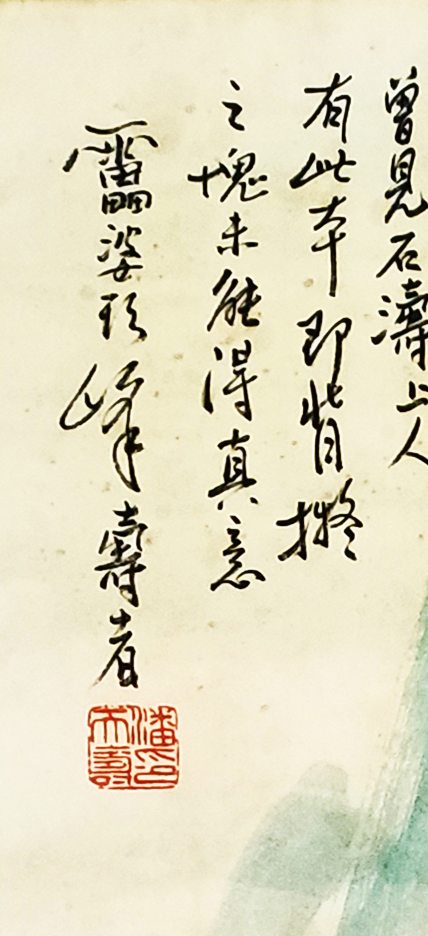 曾見石濤上人
有此本即背擬
之愧未能得真意
靁婆頭峰壽者
潘天壽印